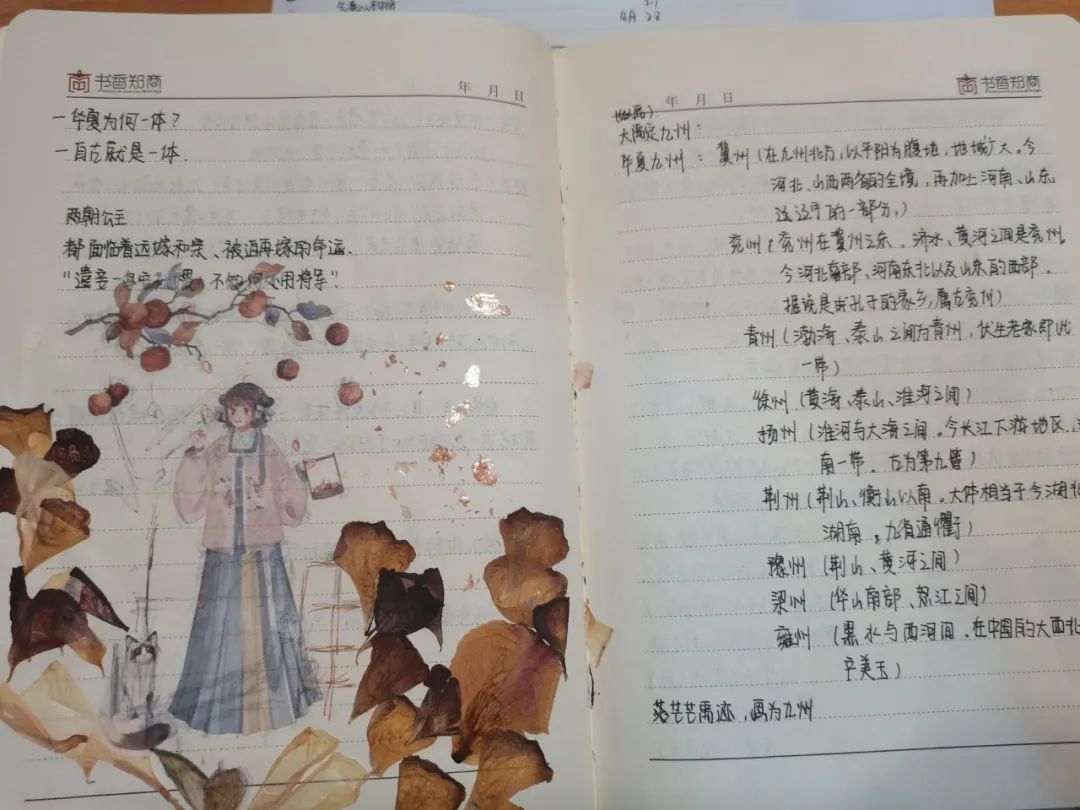 4月 28
书香郑商
年 月 日
一华夏为何一体？
一自古就是一体.
两朝公主
都面临着远嫁和亲、被迫再嫁的命运.
"遣妾一身安社稷，不知何处用将军"
书香郑商
年 月 日
大禹定九州：
华夏九州：冀州（在九州北方，以平阳为腹地，地域广大。今
河北、山西两省的全境，再加上河南、山东
辽宁的一部分。）
兖州：兖州在冀州之东，济水、黄河之间是兖州.
今河北南部、河南东北以及山东的西部.
据说是由孔子的家乡，属古兖州）
青州（渤海、泰山之间为青州，伏生老家即此
一带）
徐州（黄海、泰山、淮河之间）
扬州（淮河与大海之间。今长江下游地区，
南一带。古为第九）
荆州（荆山、衡山以南。大体相当于今湖北
湖南。九省通衢）
豫州（荆山、黄河之间）
梁州（华山南部、怒江之间）
雍州（黑水与西河间。在中国的大西北
美玉）
茫茫禹迹，画为九州